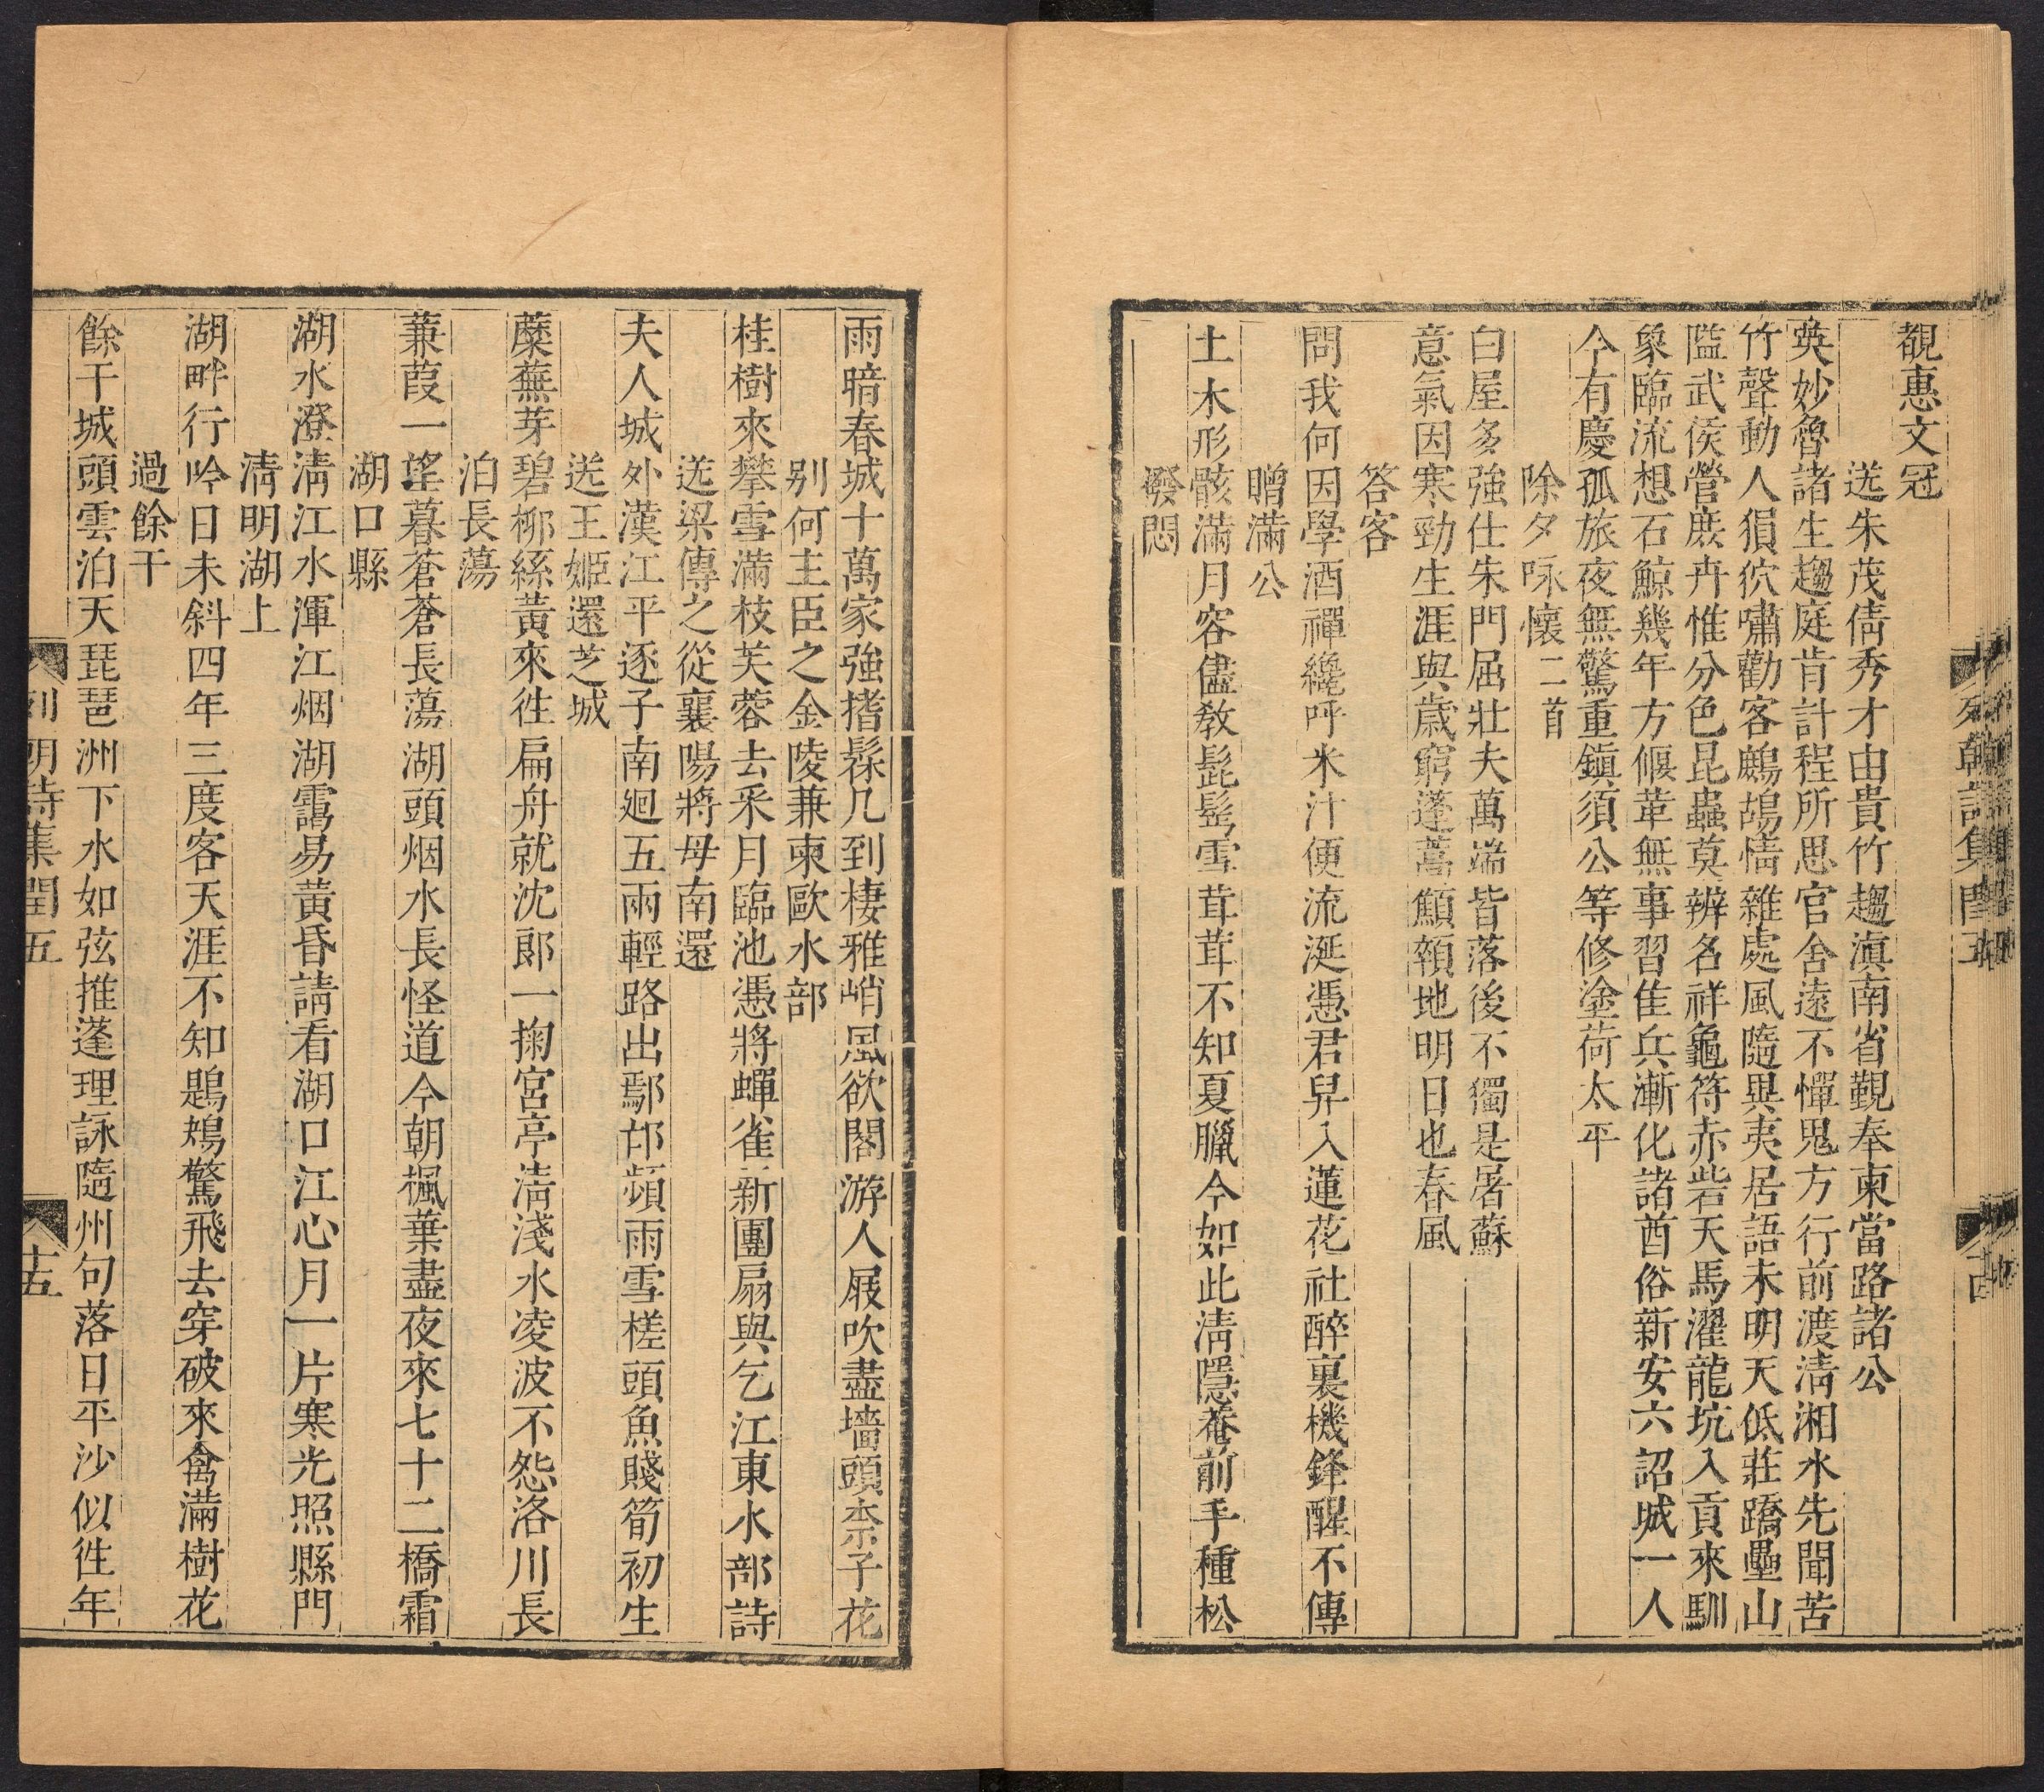 覩惠文冠
送朱茂倩秀才由貴竹趨滇南省覲奉柬當路諸公
英妙魯諸生趨庭肯計程所思官舍遠不憚鬼方行前渡清湘水先聞苦
竹聲動人狽狖嘯勸客鷓鴣情雜處風隨異夷居語未明天低莊蹻壘山
隘武侯營廐卉惟分色昆蟲莫辨名祥龜符赤砦天馬濯龍坑入貢來馴
象臨流想石鯨幾年方偃革無事習佳兵漸化諸酋俗新安六詔城一人
今有慶孤旅夜無驚重鎮須公等修塗荷太平
除夕咏懷二首
白屋多強仕朱門屈壯夫萬端皆落後不獨是屠蘇
意氣因寒勁生涯與歲窮蓬蒿顦顇地明日也春風
答客
問我何因學酒禪纔呼米汁便流涎憑君舁入蓮花社醉裏機鋒醒不傳
贈滿公
土木形骸滿月容儘教髭髩雪茸茸不知夏臘今如此淸隱菴前手種松
撥悶
列朝詩集閏五
十四
雨暗春城十萬家強揩髹几到棲雅峭風欲閣游人屐吹盡墻頭柰子花
别何主臣之金陵兼柬歐水部
桂樹來攀雪滿枝芙蓉去采月臨池憑將蟬雀新團扇與乞江東水部詩
送梁傳之從襄陽將母南還
夫人城外漢江平逐子南廻五兩輕路出鄢邙頻雨雪槎頭魚賤筍初生
送王姬還芝城
蘪蕪芽碧桺絲黃來徃扁舟就沈郎一掬宮亭淸淺水凌波不怨洛川長
泊長蕩
蒹葭一望暮蒼蒼長蕩湖頭烟水長怪道今朝楓葉盡夜來七十二橋霜
湖口縣
湖水澄淸江水渾江烟湖靄易黃昏請看湖口江心月一片寒光照縣門
淸明湖上
湖畔行吟日未斜四年三度客天涯不知鶗鴂驚飛去穿破來禽滿樹花
過餘干
餘干城頭雲泊天琵琶洲下水如弦推蓬理詠隨州句落日平沙似徃年
列朝詩集閏五
十五